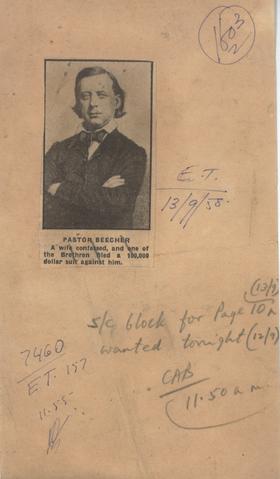 1603
2
E.T.
13/9/58.
PASTOR BEECHER
A wife confessed, and one of
the Brethren filed a 100,000
dollar suit against him.
(13/9)
S/C block for Page 10A
wanted tonight (12/9)
7460
E.T. 157
11.55
CAB
11.50 a.m.